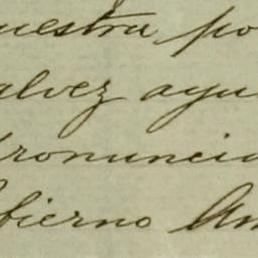 uestra po
alvez ayu
pronuncia
bierno Am